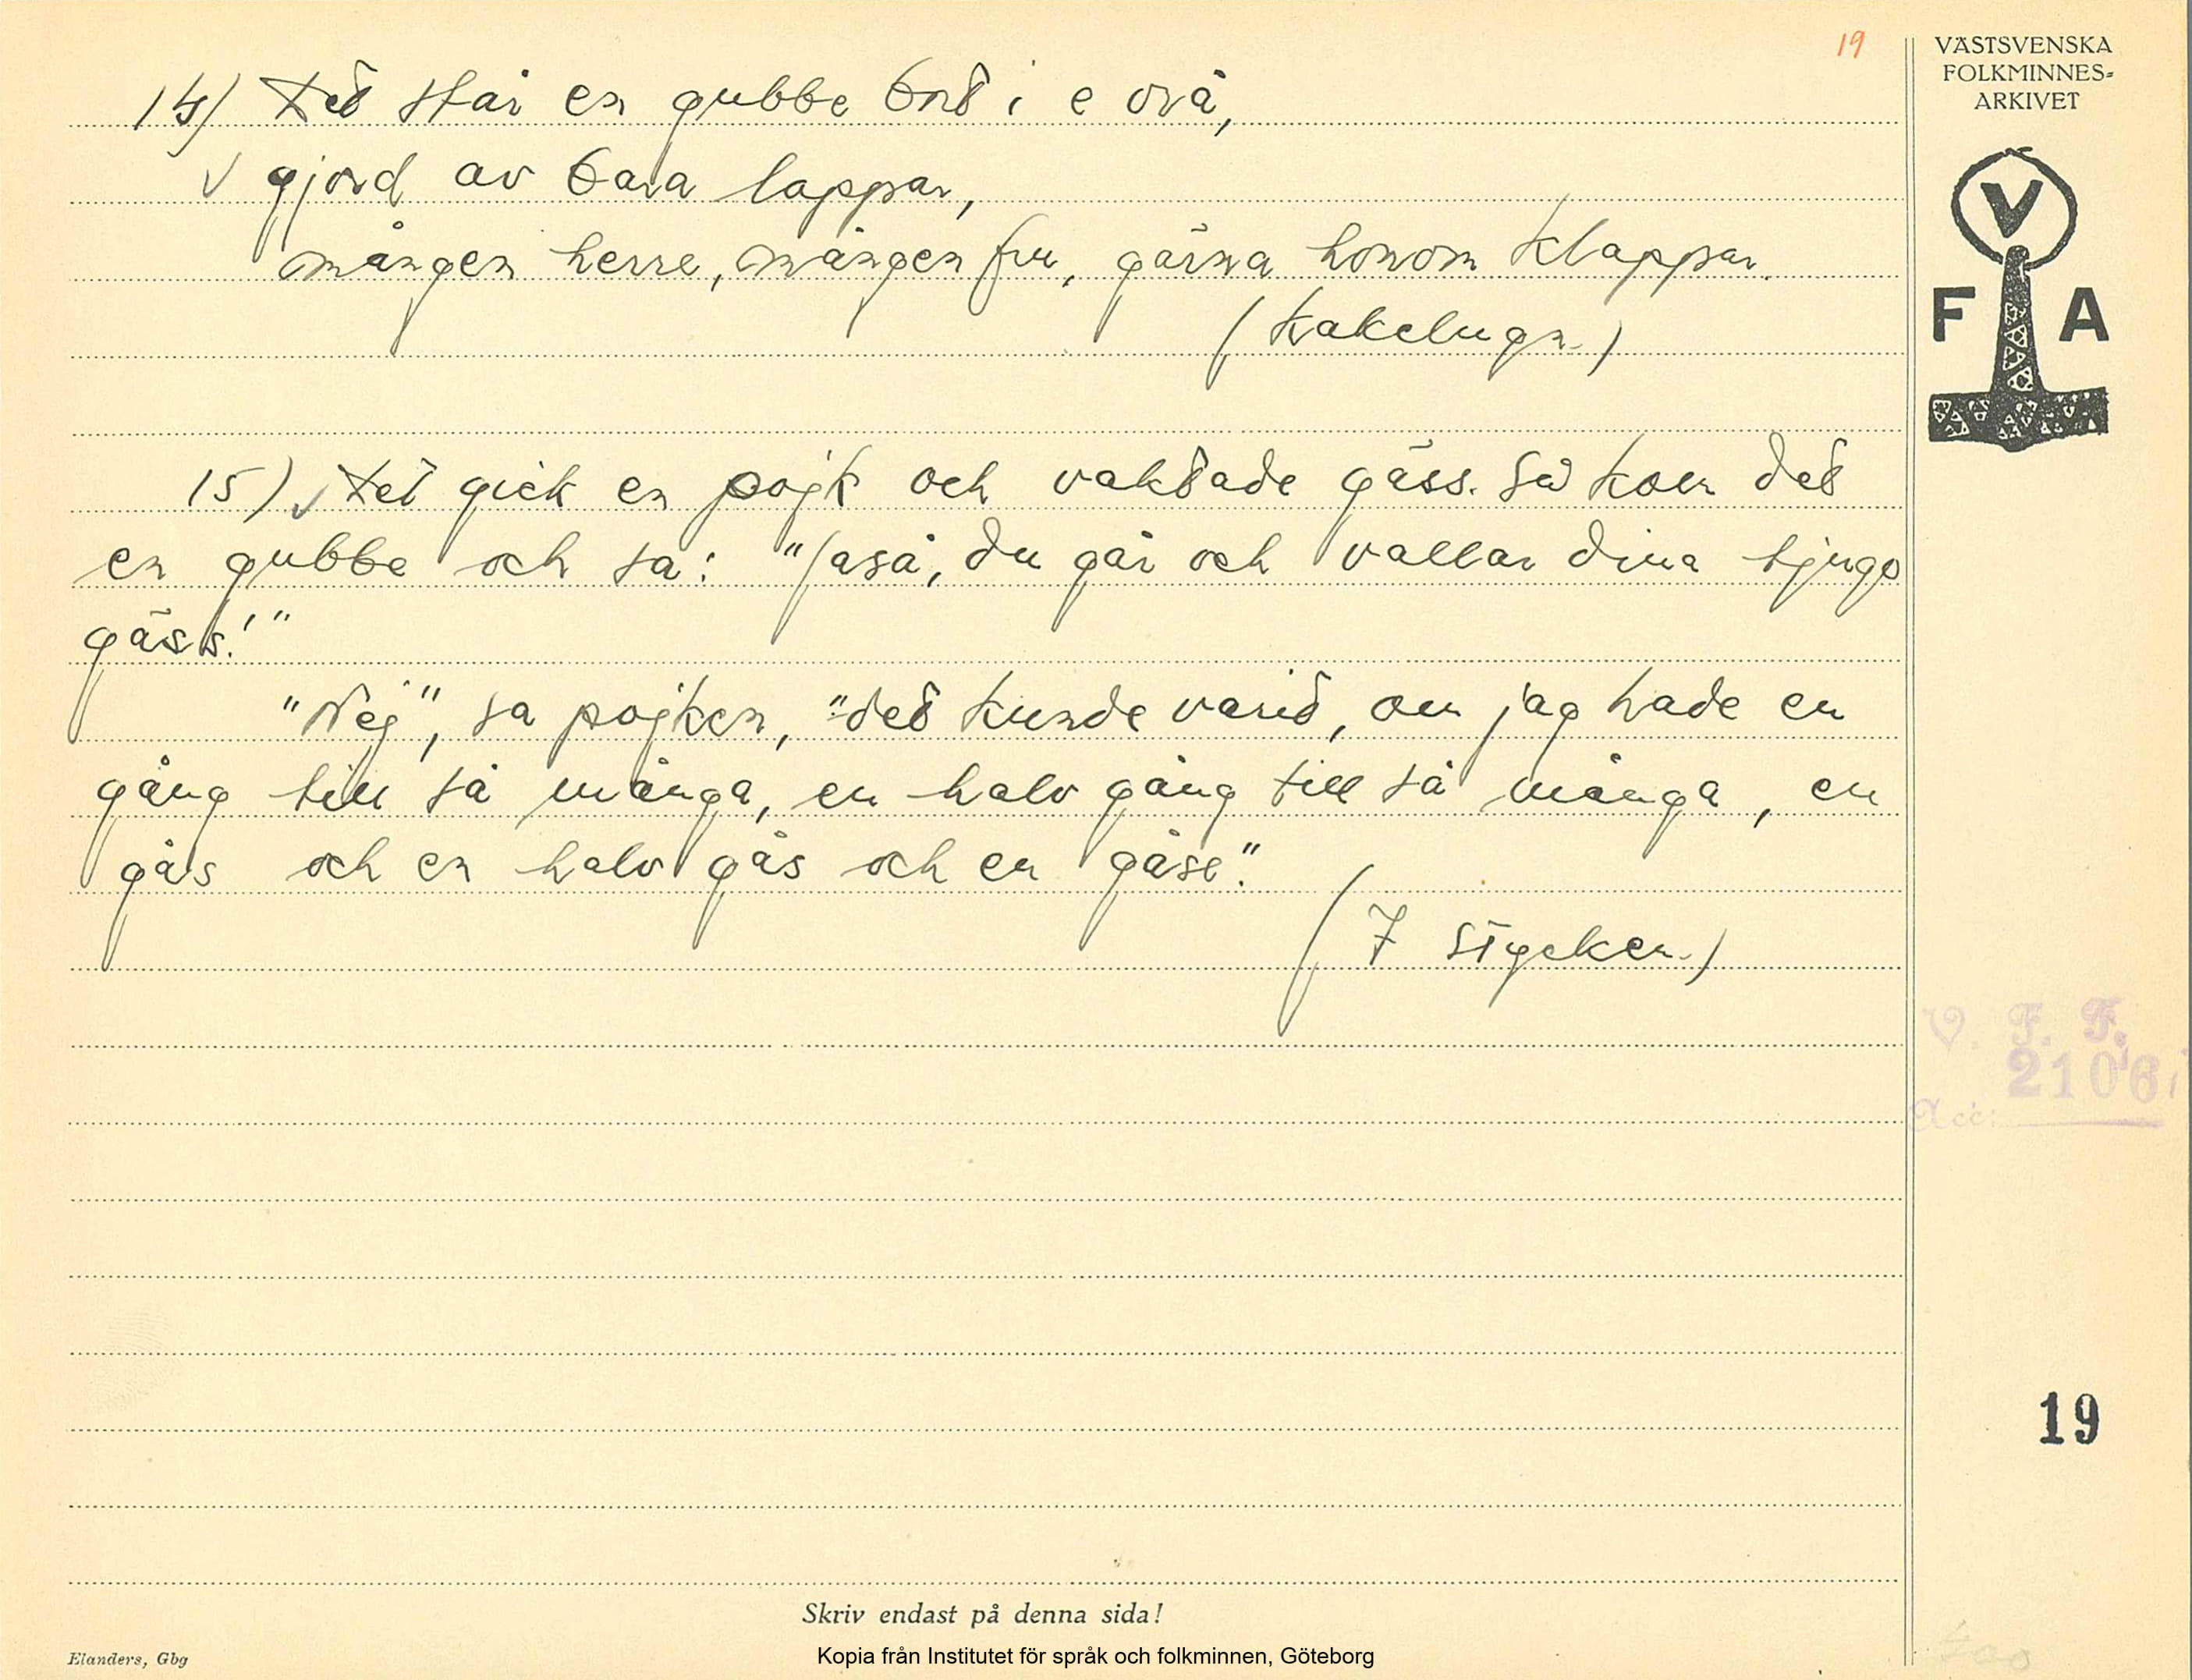 19
14) Det står en gubbe bort i e vrå,
√ gjord av bara lappar,
mången herre, mången fru, gärna honom klappar.
(Kakelugn.)
15) √ Det gick en pojk och vaktade gäss. Så kom det
en gubbe och sa: "Jaså, du går och vallar dina tjugo
gäss!"
"Nej", sa pojken, "det kunde varit, om jag hade en
gång till så många, en halv gång till så många, en
gås och en halv gås och en gåse".
(7 stycken.)
VÄSTSVENSKA
FOLKMINNES-
ARKIVET
V
F A
V. F. F.
2106
Acc:
19
Skriv endast på denna sida!
Elanders, Gbg
Kopia från Institutet för språk och folkminnen, Göteborg